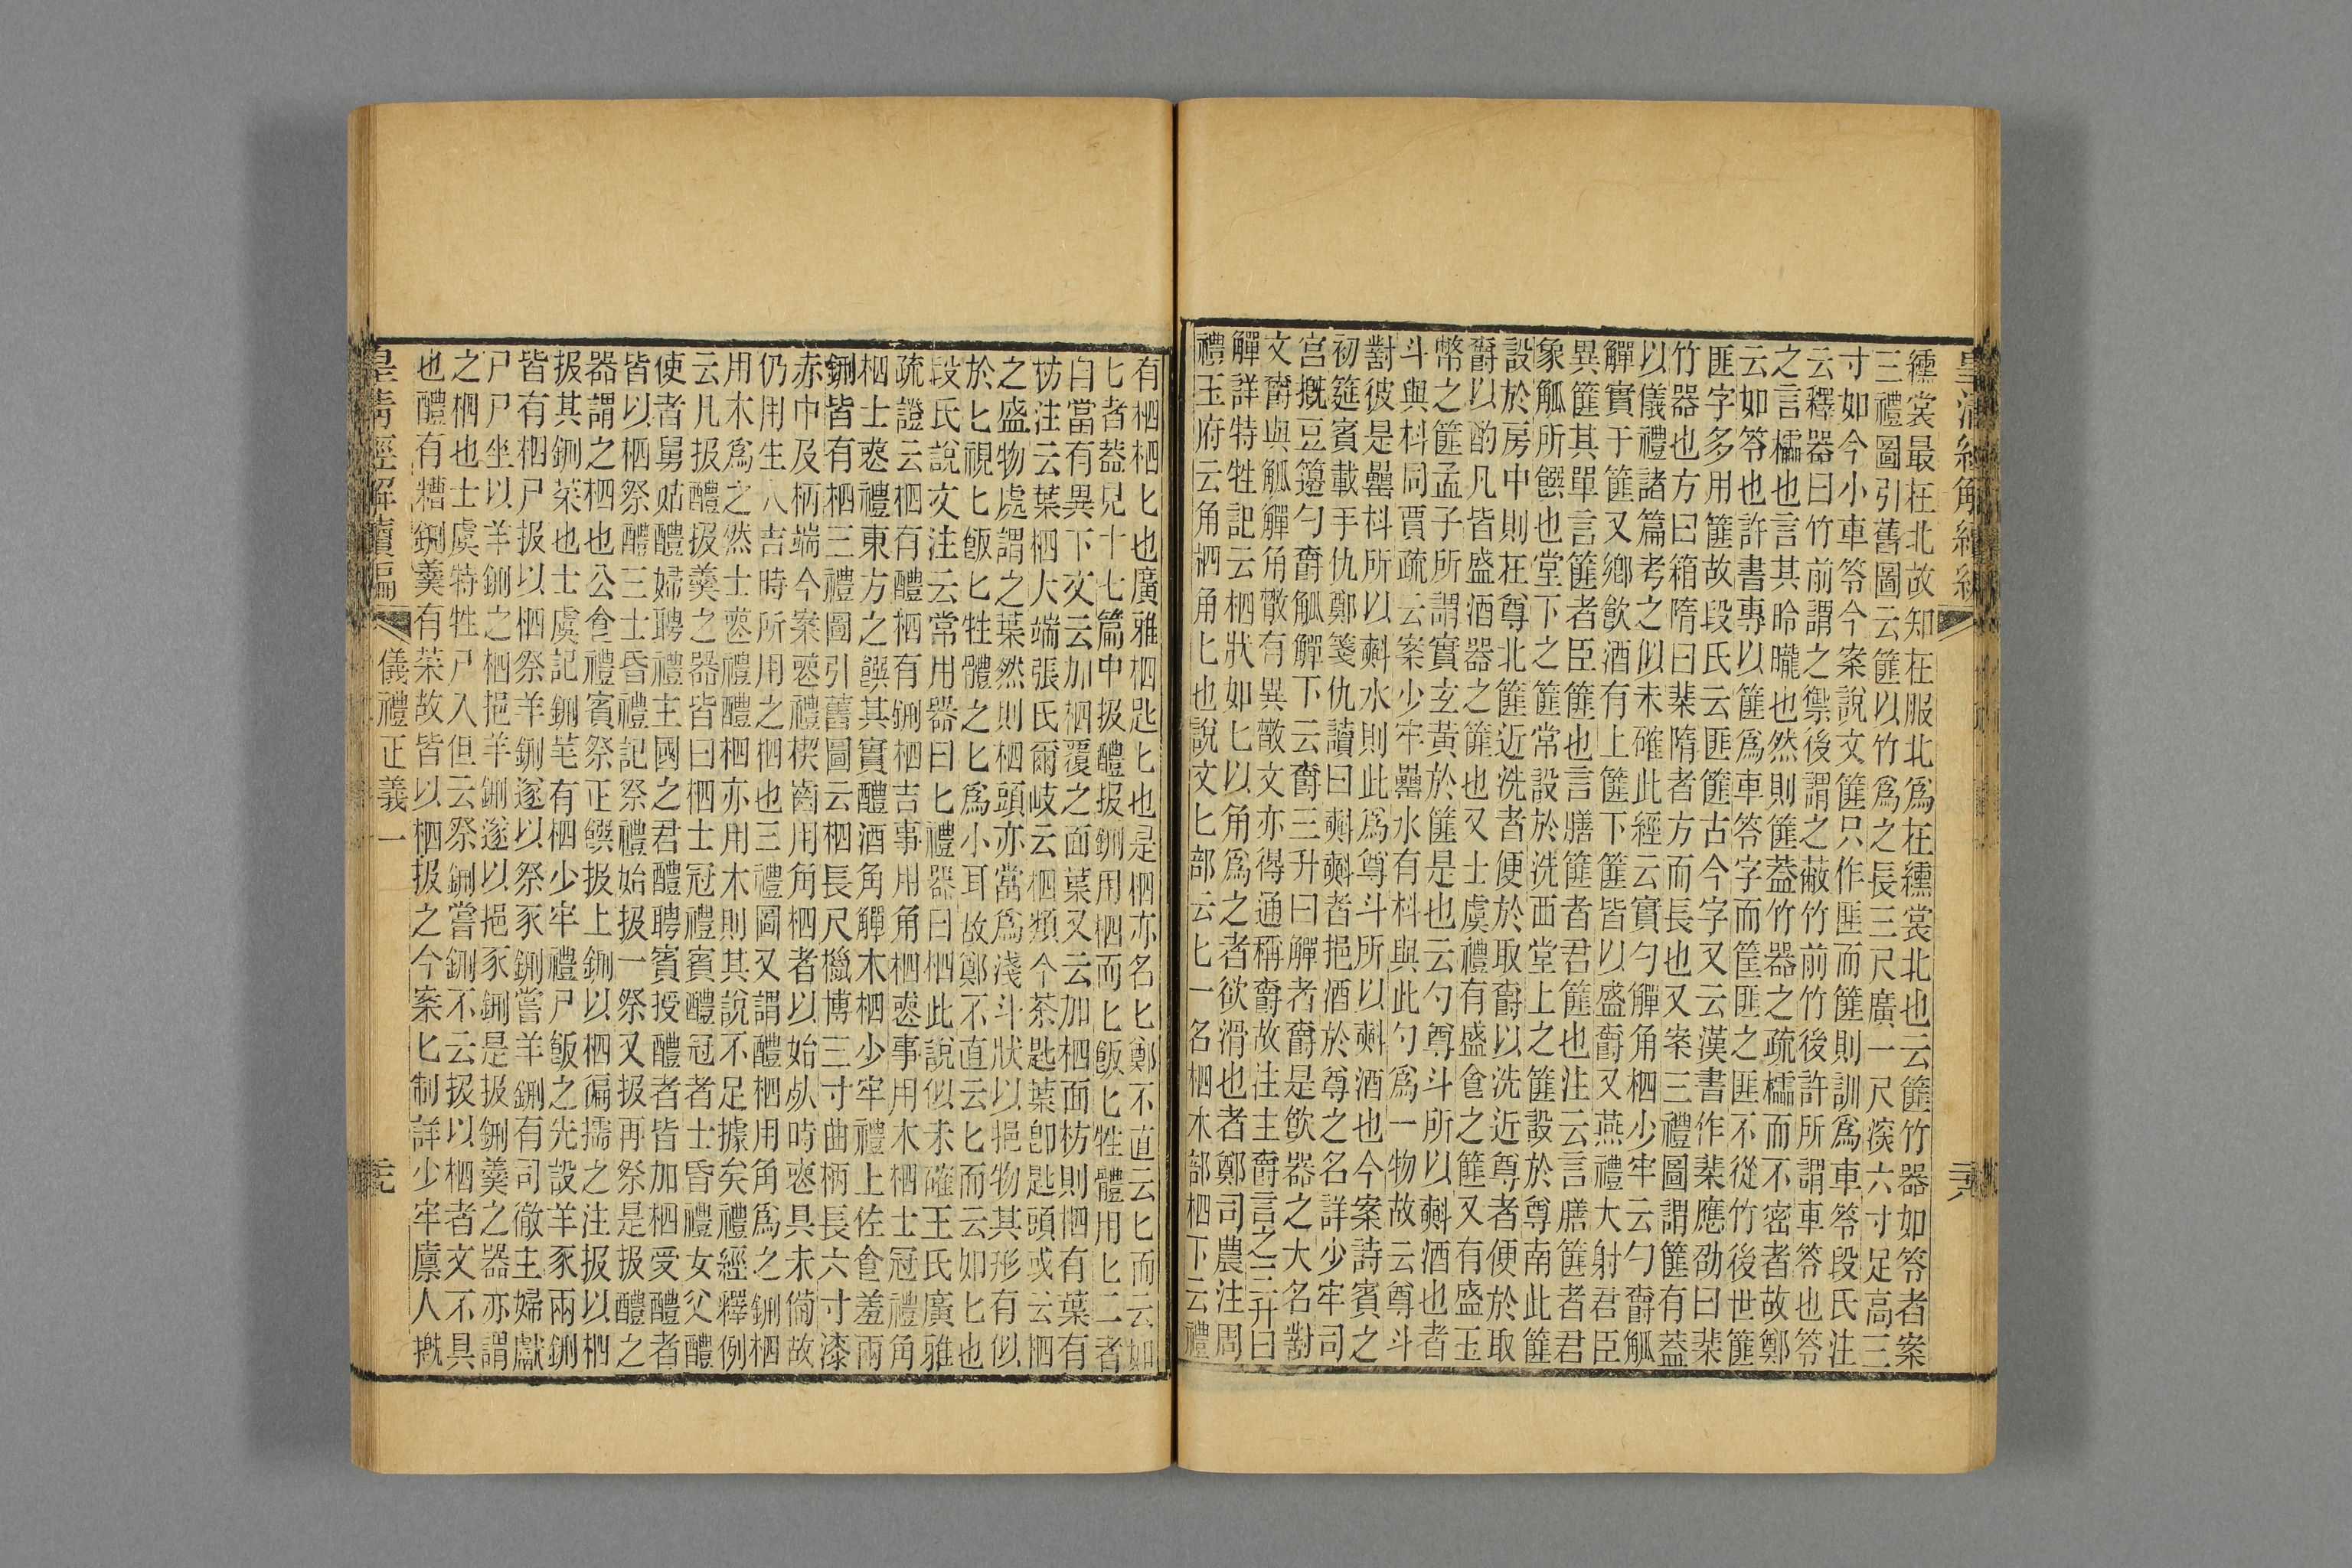 纁裳最在北故知在服北爲在纁裳北也云篚竹器如笭者案
三禮圖引舊圖云篚以竹爲之長三尺廣一尺深六寸足高三
寸如今小車笭今案說文篚只作匪而篚則訓爲車笭段氏注
云釋器曰竹前謂之禦後謂之蔽竹前竹後許所謂車笭也笭
之言櫺也言其昤曨也然則篚蓋竹器之疏櫺而不密者故鄭
云如笭也許書專以篚爲車笭字而筐匪之匪不從竹後世篚
匪字多用篚故段氏云匪篚古今字又云漢書作棐應劭曰棐
竹器也方曰箱隋曰棐隋者方而長也又案三禮圖謂篚有蓋
以儀禮諸篇考之似未確此經云實勺觶角柶少牢云勺爵觚
觶實于篚又鄉飮酒有上篚下篚皆以盛爵又燕禮大射君臣
異篚其單言篚者臣篚也言膳篚者君篚也注云言膳篚者君
象觚所饌也堂下之篚常設於洗西堂上之篚設於尊南此篚
設於房中則在尊北篚近洗者便於取爵以洗近尊者便於取
爵以酌凡皆盛酒器之篚也又士虞禮有盛食之篚又有盛玉
幣之篚孟子所謂實玄黃於篚是也云勺尊斗所以㪺酒也者
斗與枓同賈疏云案少牢罍水有枓與此勺爲一物故云尊斗
對彼是罍枓所以㪺水則此爲尊斗所以㪺酒也今案詩賓之
初筵賓載手仇鄭箋仇讀曰㪺㪺者挹酒於尊之名詳少牢司
宮摡豆籩勺爵觚觶下云爵三升曰觶者爵是飮器之大名對
文爵與觚觶角散有異散文亦得通稱爵故注主爵言之三升曰
觶詳特牲記云柶狀如匕以角爲之者欲滑也者鄭司農注周
禮玉府云角柶角匕也說文匕部云匕一名柶木部柶下云禮
有柶柶匕也廣雅柶匙匕也是柶亦名匕鄭不直云匕而云如
匕者蓋見十七篇中扱醴扱鉶用柶而匕飯匕牲體用匕二者
自當有異下文云加柶覆之面葉又云加柶面枋則柶有葉有
枋注云葉柶大端張氏爾岐云柶類今茶匙葉卽匙頭或云柶
之盛物處謂之葉然則柶頭亦當爲淺斗狀以挹物其形有似
於匕視匕飯匕牲體之匕爲小耳故鄭不直云匕而云如匕也
段氏說文注云常用器曰匕禮器曰柶此說似未確王氏廣雅
疏證云柶有醴柶有鉶柶吉事用角柶喪事用木柶士冠禮角
柶士喪禮東方之饌其實醴酒角觶木柶少牢禮上佐食羞兩
鉶皆有柶三禮圖引舊圖云柶長尺櫼博三寸曲柄長六寸漆
赤中及柄端今案喪禮楔齒用角柶者以始死時喪具未備故
仍用生人吉時所用之柶也三禮圖又謂醴柶用角爲之鉶柶
用木爲之然士喪禮醴柶亦用木則其說不足據矣禮經釋例
云凡扱醴扱羹之器皆曰柶士冠禮賓醴冠者士昏禮女父醴
使者舅姑醴婦聘禮主國之君醴聘賓授醴者皆加柶受醴者
皆以柶祭醴三士昏禮記祭禮始扱一祭又扱再祭是扱醴之
器謂之柶也公食禮賓祭正饌扱上鉶以柶徧擩之注扱以柶
扱其鉶菜也士虞記鉶芼有柶少牢禮尸飯之先設羊豕兩鉶
皆有柶尸扱以柶祭羊鉶遂以祭豕鉶嘗羊鉶有司徹主婦獻
尸尸坐以羊鉶之柶挹羊鉶遂以挹豕鉶是扱鉶羹之器亦謂
之柶也士虞特牲尸入但云祭鉶嘗鉶不云扱以柶者文不具
也醴有糟鉶羹有菜故皆以柶扱之今案匕制詳少牢廩人摡
皇清經解續編 儀禮正義一 元